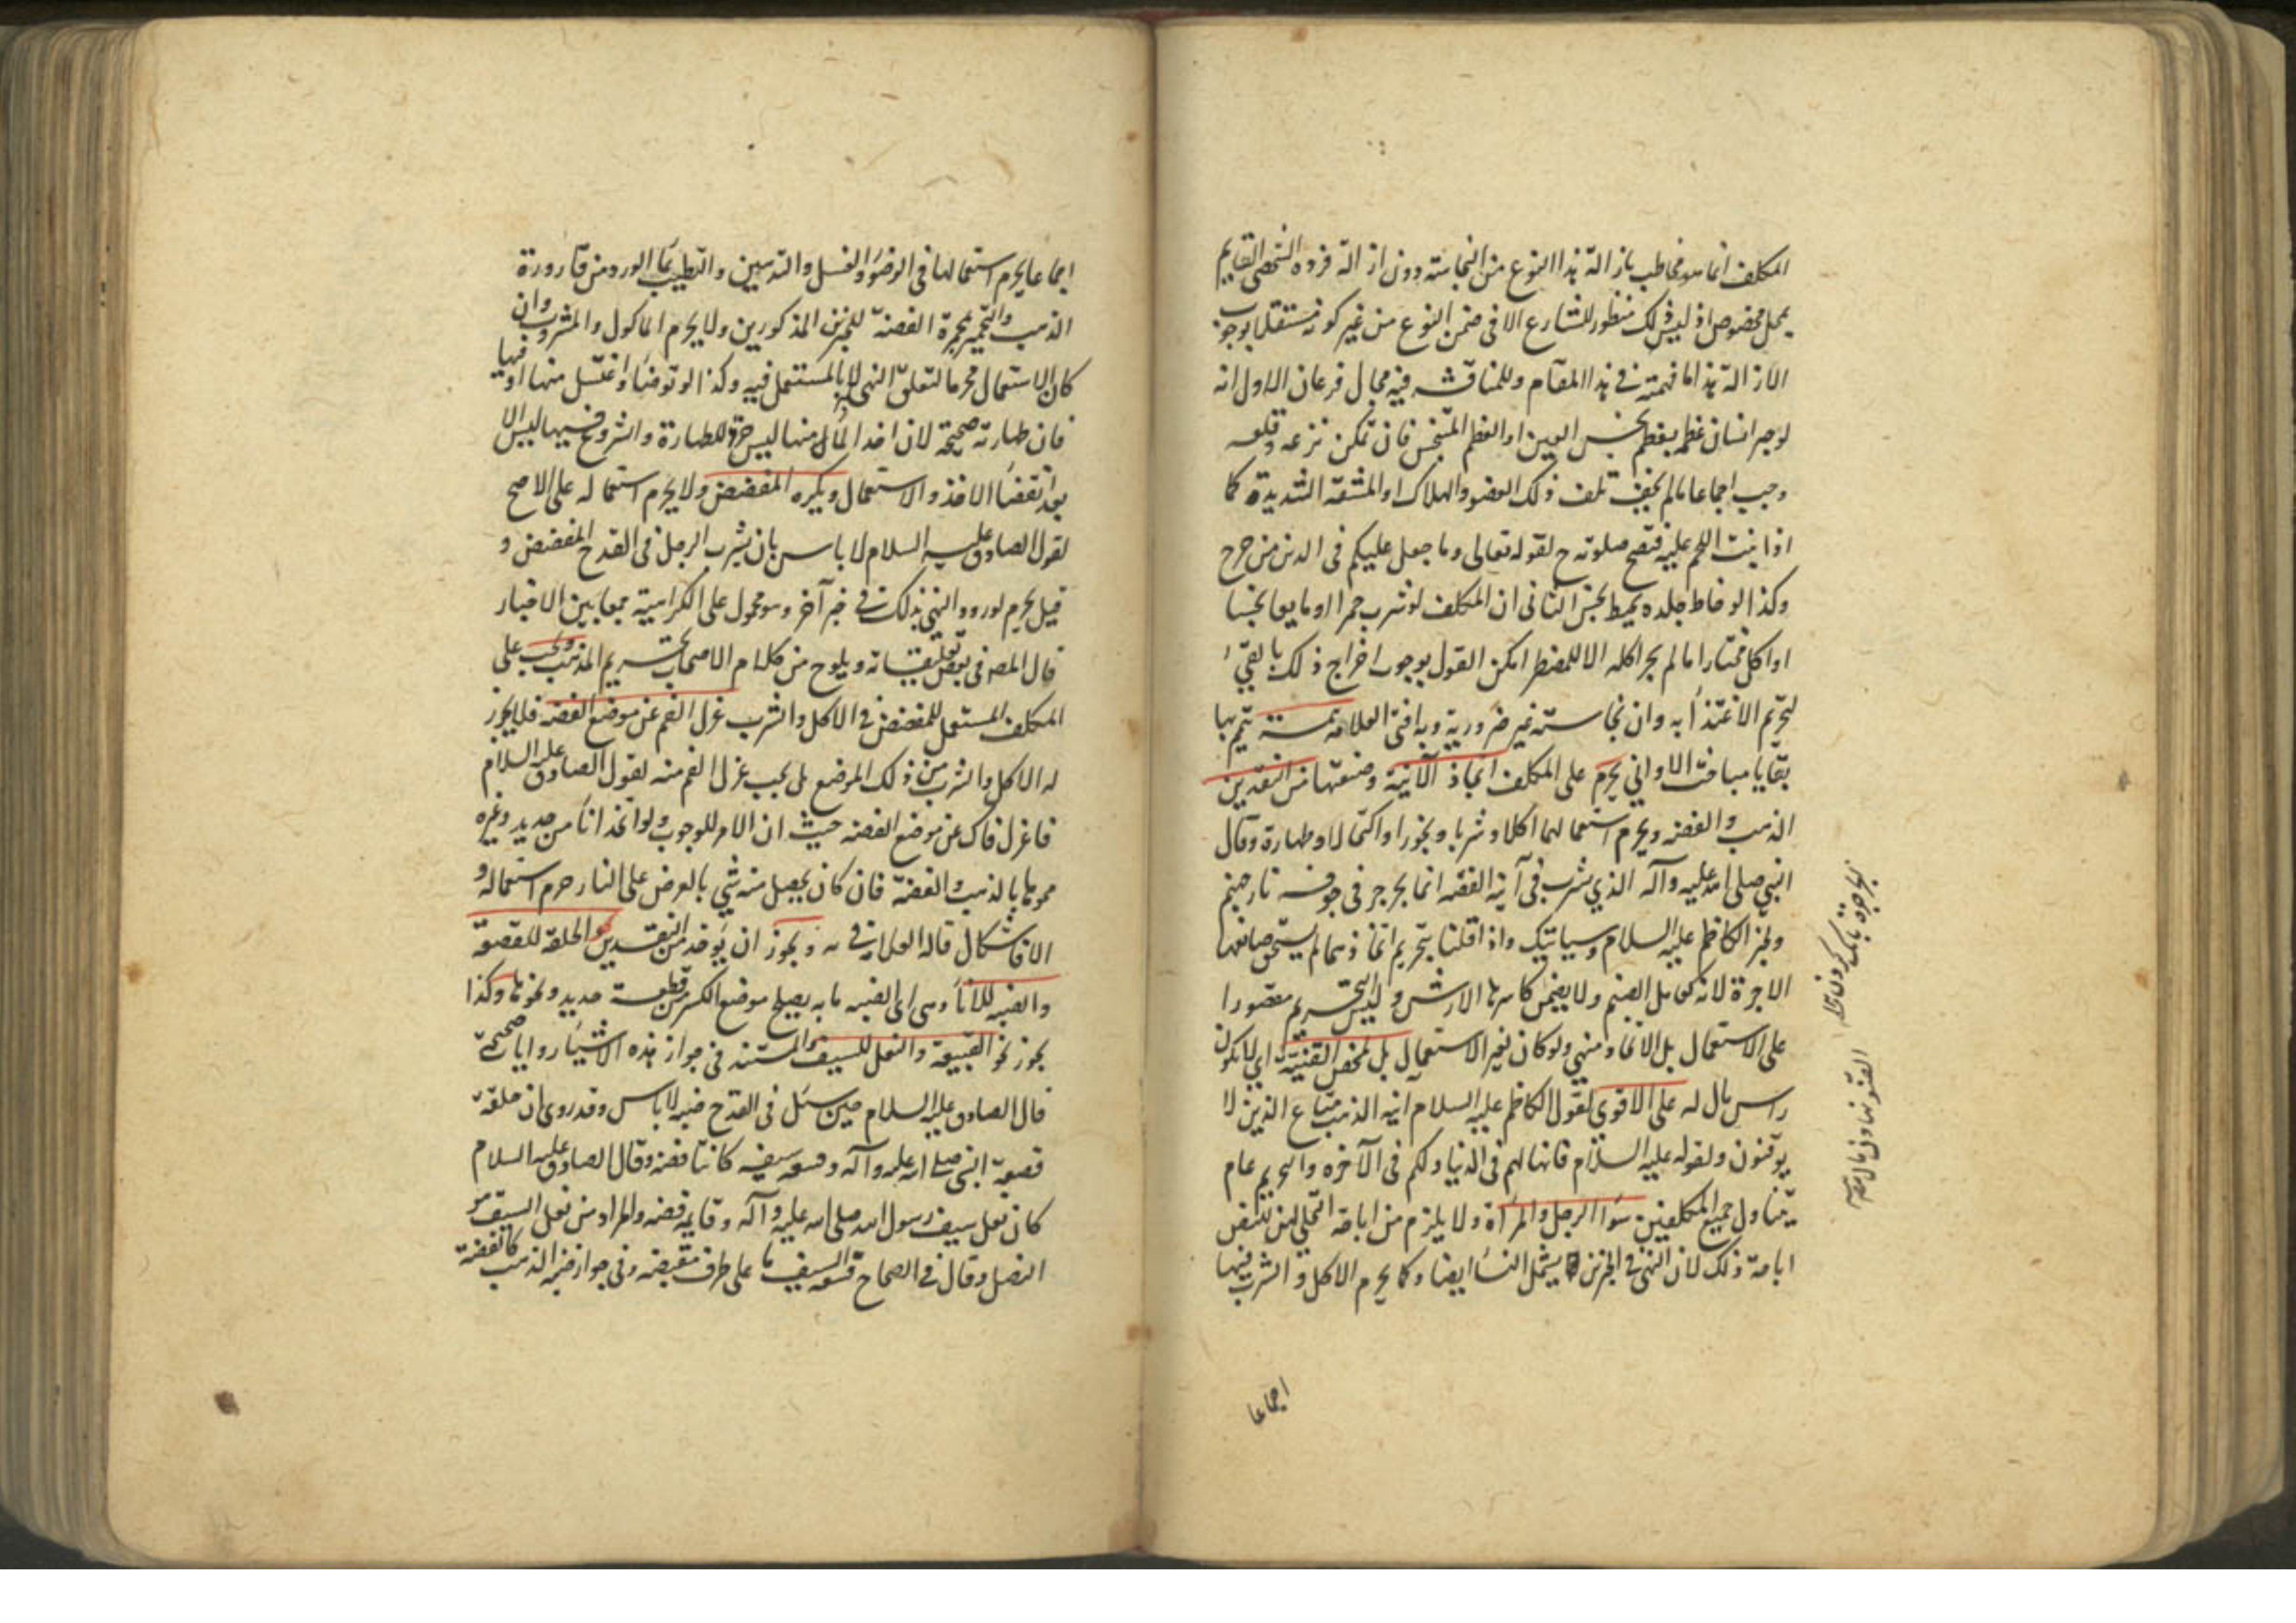 المكلف انما هو مخاطب بازالة هذا النوع من النجاسة دون ازالة فرده الشخصى القايم
بمحل مخصوص اذ ليس ذلك منظور للشارع الا فى ضمن النوع من غير كونه مستقلا بوجوب
الازالة هذا ما فهمته فى هذا المقام وللمناقشه فيه مجال فرعان الاول انه
لو جبر انسان عظمه بعظم نجس العين او العظم المتنجس فان تمكن نزعه وقلعه
وجب اجماعا مالم يخف تلف ذلك العضو والهلاك او المشقة الشديدة كما
اذا ينبت اللحم عليه فتصح صلوته ح لقوله تعالى وما جعل عليكم فى الدين من حرج
وكذا لو خاط جلده بخيط نجس الثانى ان المكلف لو شرب خمرا او مايعا نجسا
او اكل مختارا مالم يجز اكله الا للمضطر امكن القول بوجوب اخراج ذلك بالقىء
لتحريم الاغتذاء به وان نجاسته غير ضرورية وبه افتى العلامه تتمة يتم بها
بقايا مباحث الاوانى يحرم على المكلف اتخاذ الآنية وصنعتها من النقدين
الذهب والفضه ويحرم استعمالهما اكلا وشربا وبخورا واكتحالا وطهارة وقال
النبى صلى الله عليه وآله الذي يشرب فى آنية الفضه انما يجرجر فى جوفه نار جهنم
ولخبر الكاظم عليه السلام وسياتيك واذا قلنا بتحريم اتخاذهما لم يستحق صانعها
الاجرة لانه كعامل الصنم ولا يضمن كاسرها الارش وليس التحريم مقصورا
على الاستعمال بل الاتخاذ منهى ولو كان لغير الاستعمال بل لمحض القنية اى لا يكون
راس مال له على الاقوى لقول الكاظم عليه السلام آنية الذهب متاع الذين لا
يوقنون ولقوله عليه السلام فانها لهم فى الدنيا ولكم فى الآخره والتحريم عام
يتناول جميع المكلفين سواء الرجل والمرأة ولا يلزم من اباحة التحلى لهن
اباحة ذلك لان النهى فى الخبرين يشمل النساء ايضا وكما يحرم الاكل والشرب فيها
اجماعا
اجماعا يحرم استعمالها فى الوضوء والغسل والتدهين والتطييب بماء الورد من قارورة
الذهب والتجمير بمجمرة الفضة للخبرين المذكورين ولا يحرم الماكول والمشروب وان
كان الاستعمال محرما لتعلق النهى به لا بالمستعمل فيه وكذا لو توضأ واغتسل منها او فيها
فان طهارته صحيحة لان اخذ الماء منها ليس جزءا للطهارة والشروع فيها ليس الا
بعد انقضاء الاخذ والاستعمال ويكره المفضض ولا يحرم استعماله على الاصح
لقول الصادق عليه السلام لا باس بان يشرب الرجل فى القدح المفضض و
قيل يحرم لورود النهى بذلك فى خبر آخر وهو محمول على الكراهية جمعا بين الاخبار
قال المصه فى بعض تعليقاته ويلوح من كلام الاصحاب تحريم المذهب ويجب على
المكلف المستعمل للمفضض فى الاكل والشرب عزل الفم عن موضع الفضه فلا يجوز
له الاكل والشرب من ذلك الموضع بل يجب عزل الفم منه لقول الصادق عليه السلام
فاعزل فاك عن موضع الفضه حيث ان الامر للوجوب ولو اتخذ اناء من حديد وغيره
مموها بالذهب والفضة فان كان يحصل منه شيء بالعرض على النار حرم استعماله و
الا فاشكال قاله العلامة فى ويجوز ان يؤخذ من النقدين نحو الحلقة للقصعة
والضبه للاناء وهى اى الضبه ما به يصلح موضع الكسر من قطعة حديد ونحوها وكذا
يجوز نحو القبيعة والنعل للسيف والمستند فى جواز هذه الاشياء روايات صحيحة
قال الصادق عليه السلام حين سئل فى القدح ضبه لا باس وقد روى ان حلقة
قصعة النبى صلى الله عليه وآله وقبيعة سيفه كانتا فضه وقال الصادق عليه السلام
كان نعل سيف رسول الله صلى الله عليه وآله وقايمه فضه والمراد من نعل السيف هو
النصل وقال فى الصحاح قبيعة السيف ما على طرف مقبضه وفى جواز ضبه الذهب كالفضة